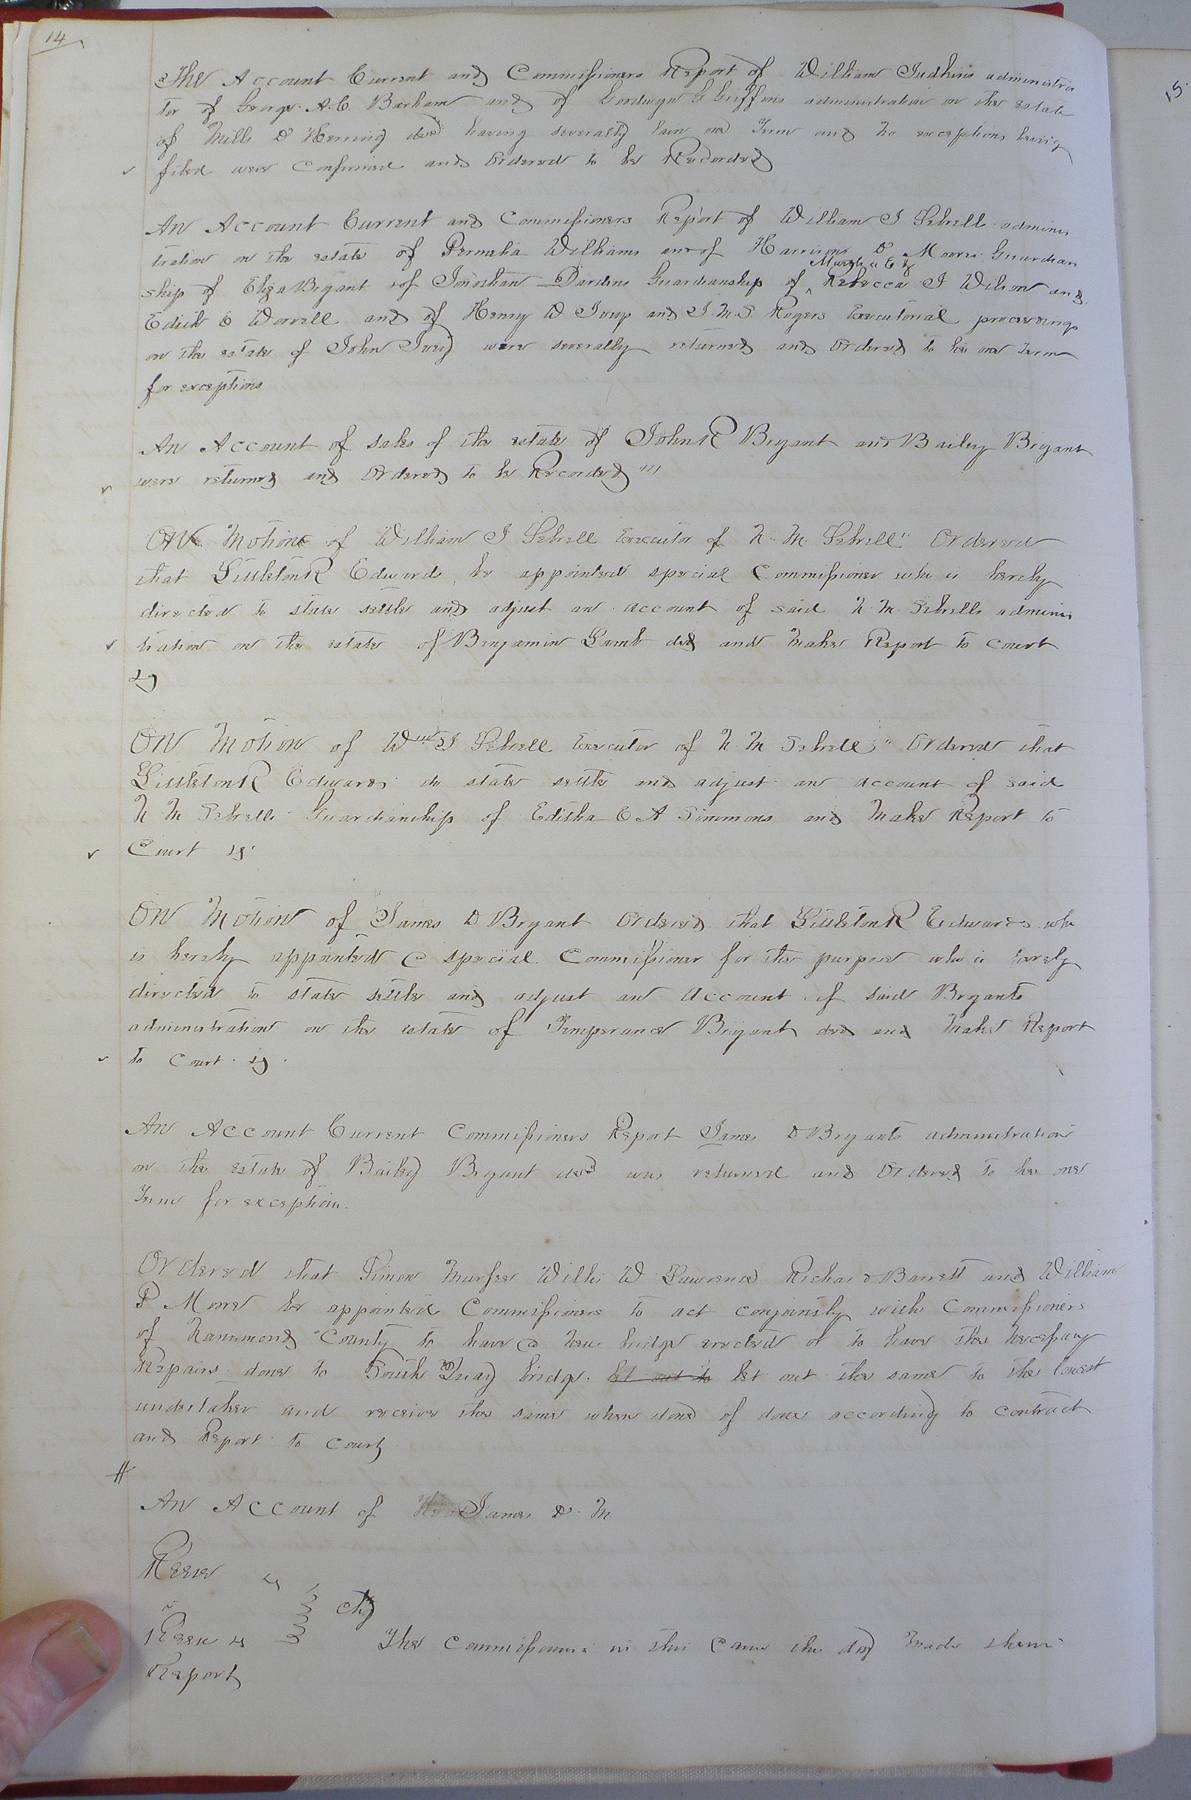 14
15
The Account Current and Commissioners Report of William Judkins administra
tor of George A. C. Barham and of Goodwyn G Griffins administration on the estate
of Mills D Herring decd having severally lain one Term and no exceptions being
filed were Confirmed and Ordered to be Recorded
An Account Current and Commissioners Report of William J Sebrell adminis
tration on the estate of Permelia Williams and of Harrison D Moores Guardian
ship of Eliza Bryant & of Jonathan Dardens Guardianship of Rebecca J Wilson and
Edith E Worrell and of Henry D and J. M. S. Rogers Executorial proceedings
on the estate of John Ivey were severally returned and Ordered to lie one term
for exceptions
An Account of sales of the estate of John R Bryant and Bailey Bryant
were returned and Ordered to be Recorded "
On Motion of William J Sebrell Executor of N. M. Sebrell" Ordered
that Littleton R Edwards be appointed special Commissioner who is hereby
directed to state settle and adjust an account of said N M Sebrells adminis
tration on the estate of Benjamin Lamb decd and make Report to Court
On Motion of Wm J Sebrell Executor of N. M Sebrell" Ordered that
Littleton R Edwards do state settle and adjust an account of said
N M Sebrells Guardianship of Editha E A Simmons and Make Report to
Court
On Motion of James D Bryant Ordered that Littleton R Edwards who
is hereby appointed a special Commissioner for the purpose who is hereby
directed to state settle and adjust an Account of said Bryants
administration on the estate of Temperance Bryant decd and Make Report
to Court.
An Account Current Commissioners Report James D Bryants administration
on the estate of Bailey Bryant decd was returned and Ordered to lie one
Term for exceptions.
Ordered that Simon Murfee Willi W Lawrence Richard Barrett and William
P Moore be appointed Commissioners to act conjointly with Commissioners
of Nansemond County to have a new bridge erected or to have the necessary
Repairs done to South Quay bridge. let out to let out the same to the lowest
undertaker and receive the same when done if done according to contract
and Report to Court
An Account of James D. M
Reese
vs
Reese vs
The Commissioners in this Cause this day made their
Report